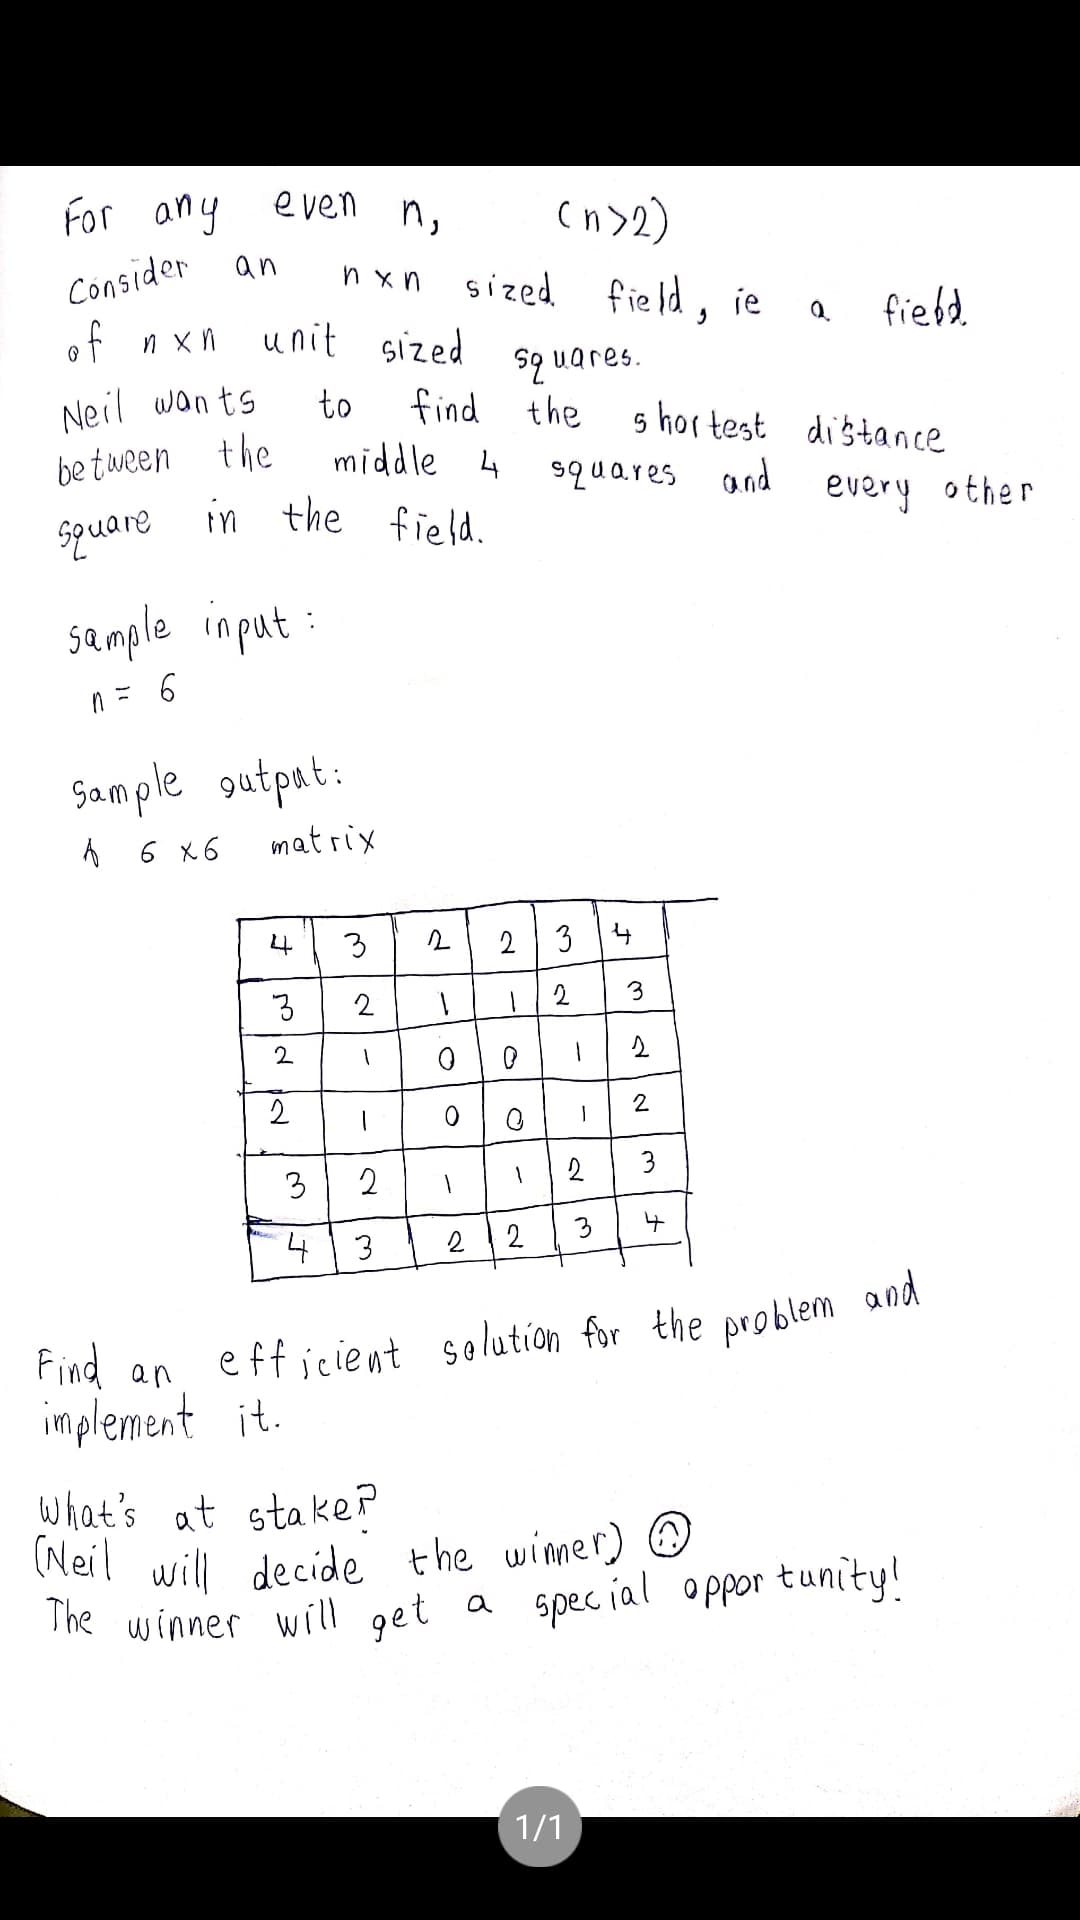 For any even n, (n>2)
Consider an n x n sized field, ie a field
of n x n unit sized squares.
Neil wants to find the shortest distance
between the middle 4 squares and every other
square in the field.
Sample input :
n = 6
Sample output:
A 6 x 6 matrix
4 3 2 2 3 4
3 2 1 1 2 3
2 1 0 0 1 2
2 1 0 0 1 2
3 2 1 1 2 3
4 3 2 2 3 4
Find an efficient solution for the problem and
implement it.
What's at stake?
(Neil will decide the winner)
The winner will get a special opportunity!
1/1